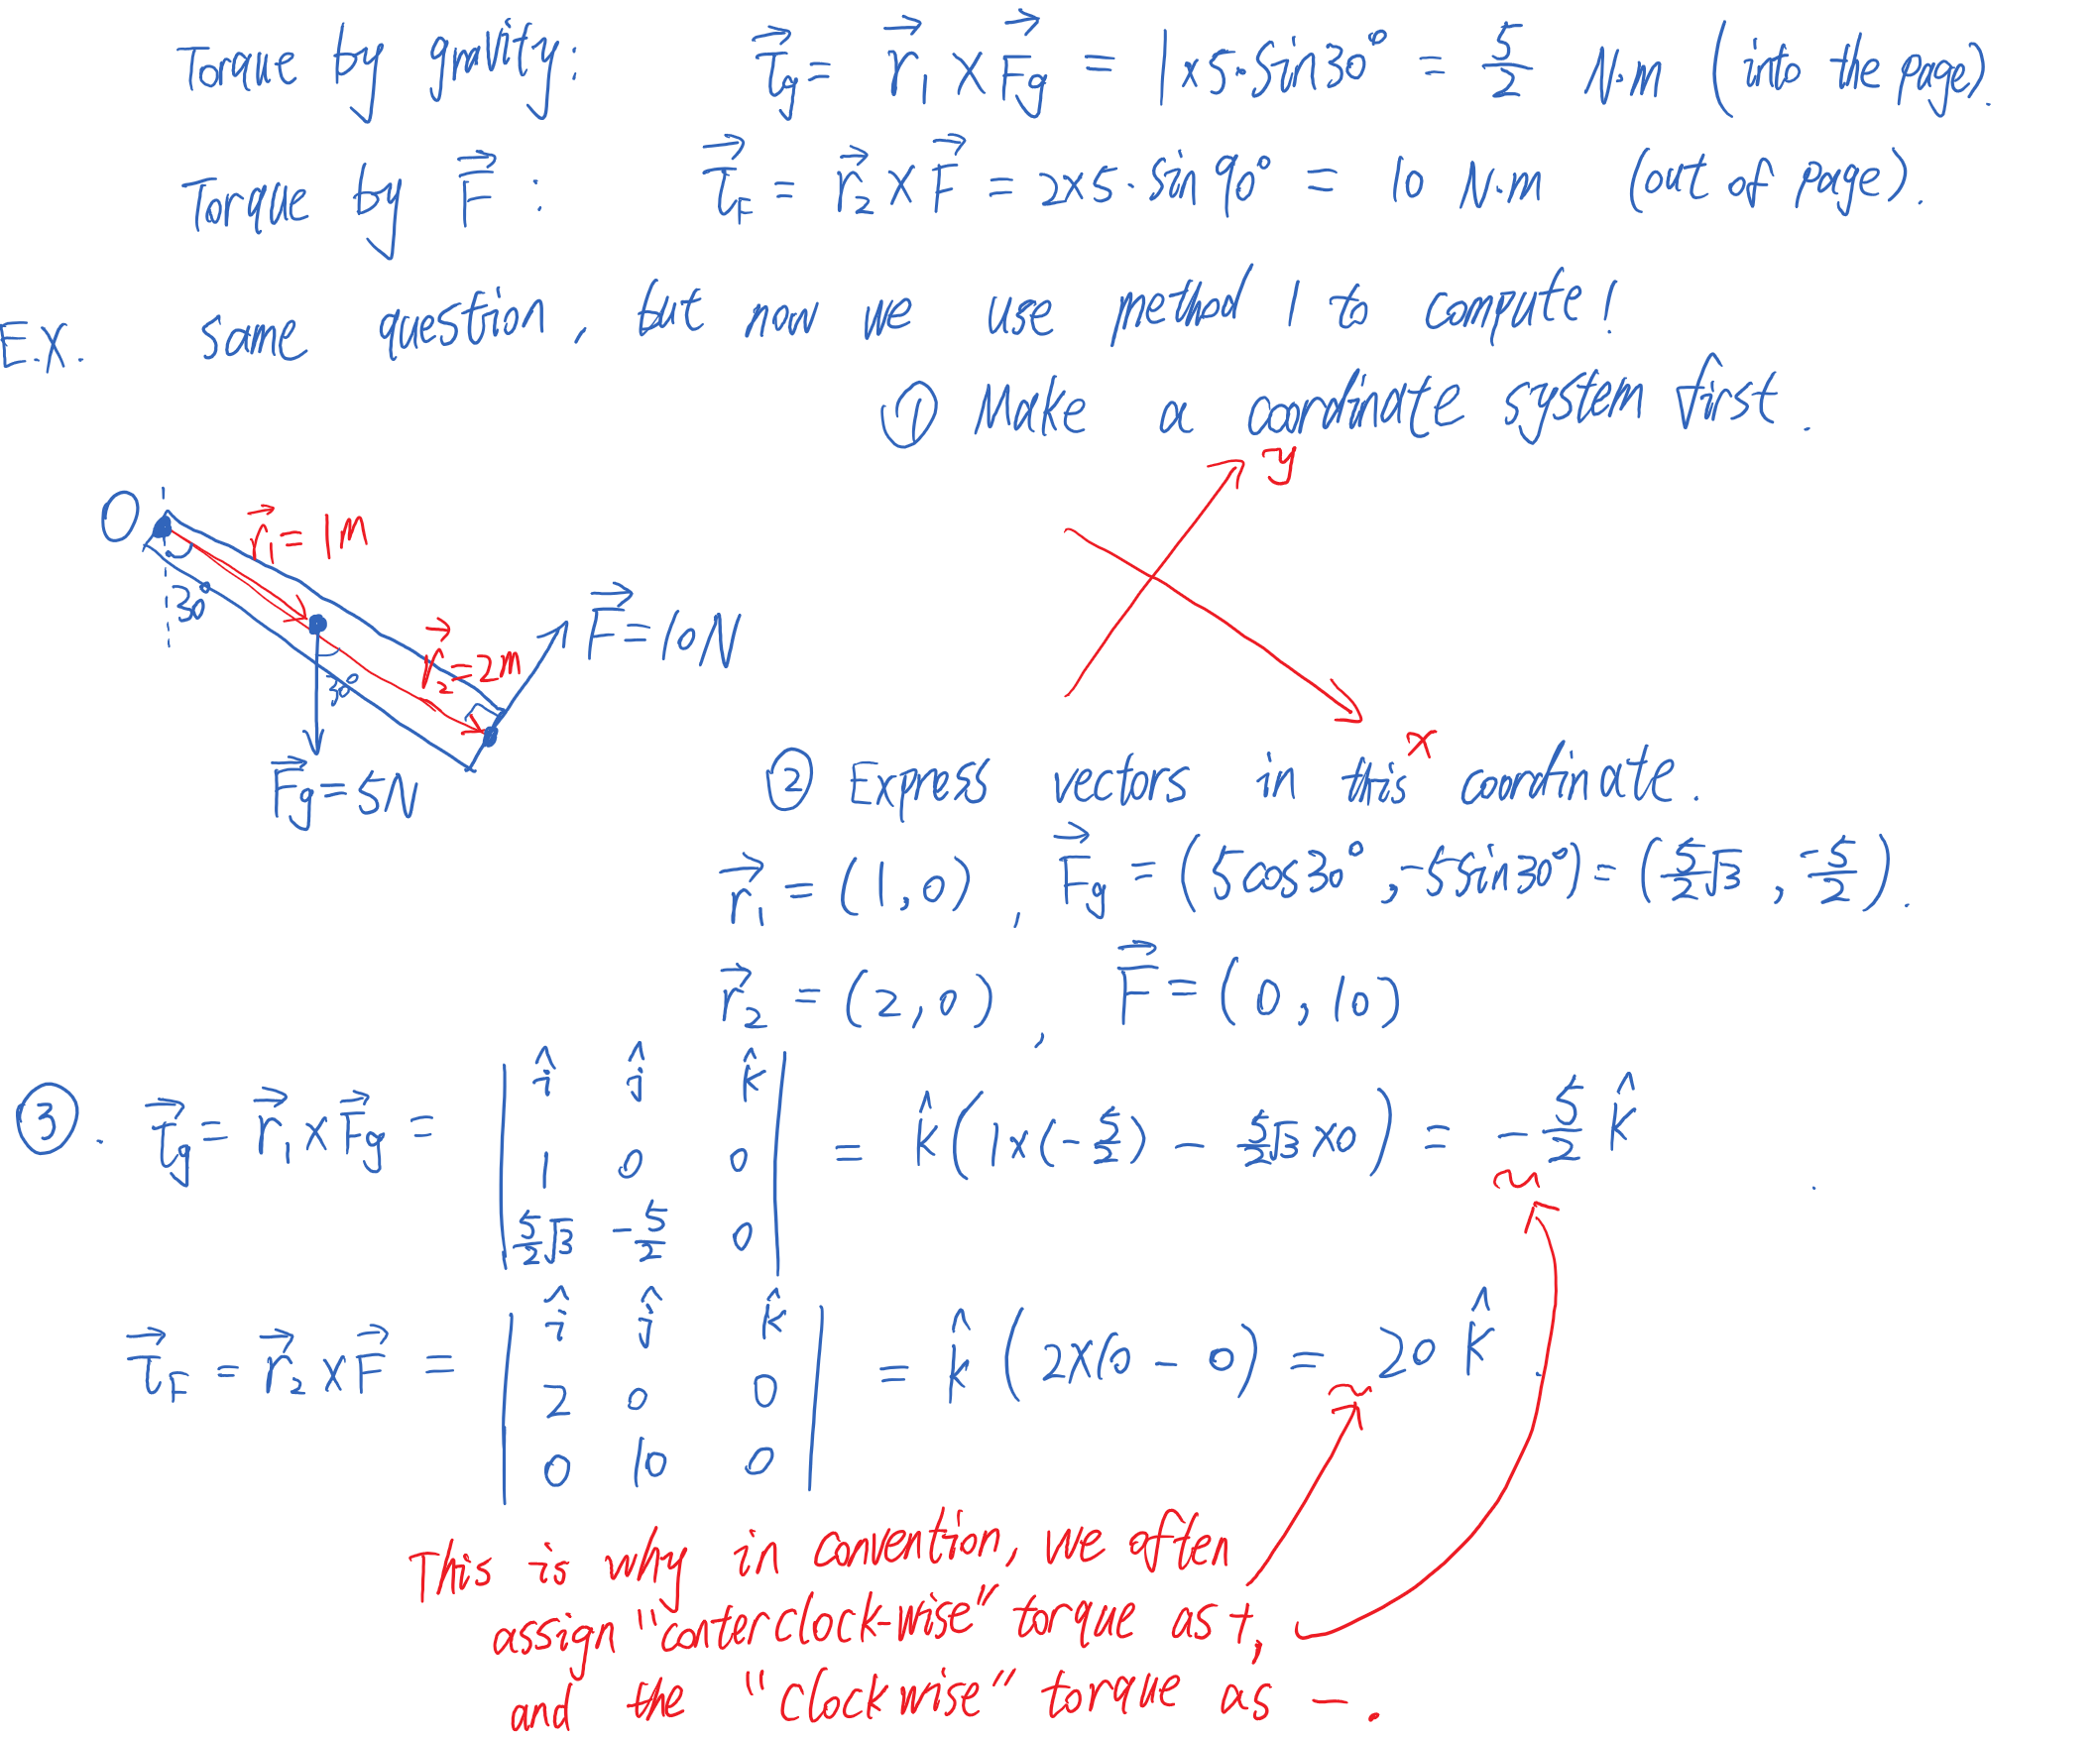 Torque by gravity: τ⃗g = r⃗₁ × F⃗g = 1×5·sin30° = 5/2 N·m (into the page).
Torque by F⃗: τ⃗F = r⃗₂ × F⃗ = 2×5·sin90° = 10 N·m (out of page).
E.X. same question, but now we use method 1 to compute!
① Make a coordinate system first.
y
O
r⃗₁ = 1m
30°
F⃗ = 10N
r⃗₂ = 2m
30°
x
F⃗g = 5N
② Express vectors in this coordinate.
r⃗₁ = (1,0), F⃗g = (5cos30°, -5sin30°) = (5/2√3, -5/2).
r⃗₂ = (2,0), F⃗ = (0,10)
③. τ⃗g = r⃗₁ × F⃗g = | î ĵ k̂ | = k̂(1×(-5/2) - 5/2√3×0) = -5/2 k̂.
1 0 0
5/2√3 -5/2 0
τ⃗F = r⃗₂ × F⃗ = | î ĵ k̂ | = k̂(2×10 - 0) = 20 k̂.
2 0 0
0 10 0
This is why in convention, we often
assign "conterclock-wise" torque as +,
and the "clockwise" torque as -.